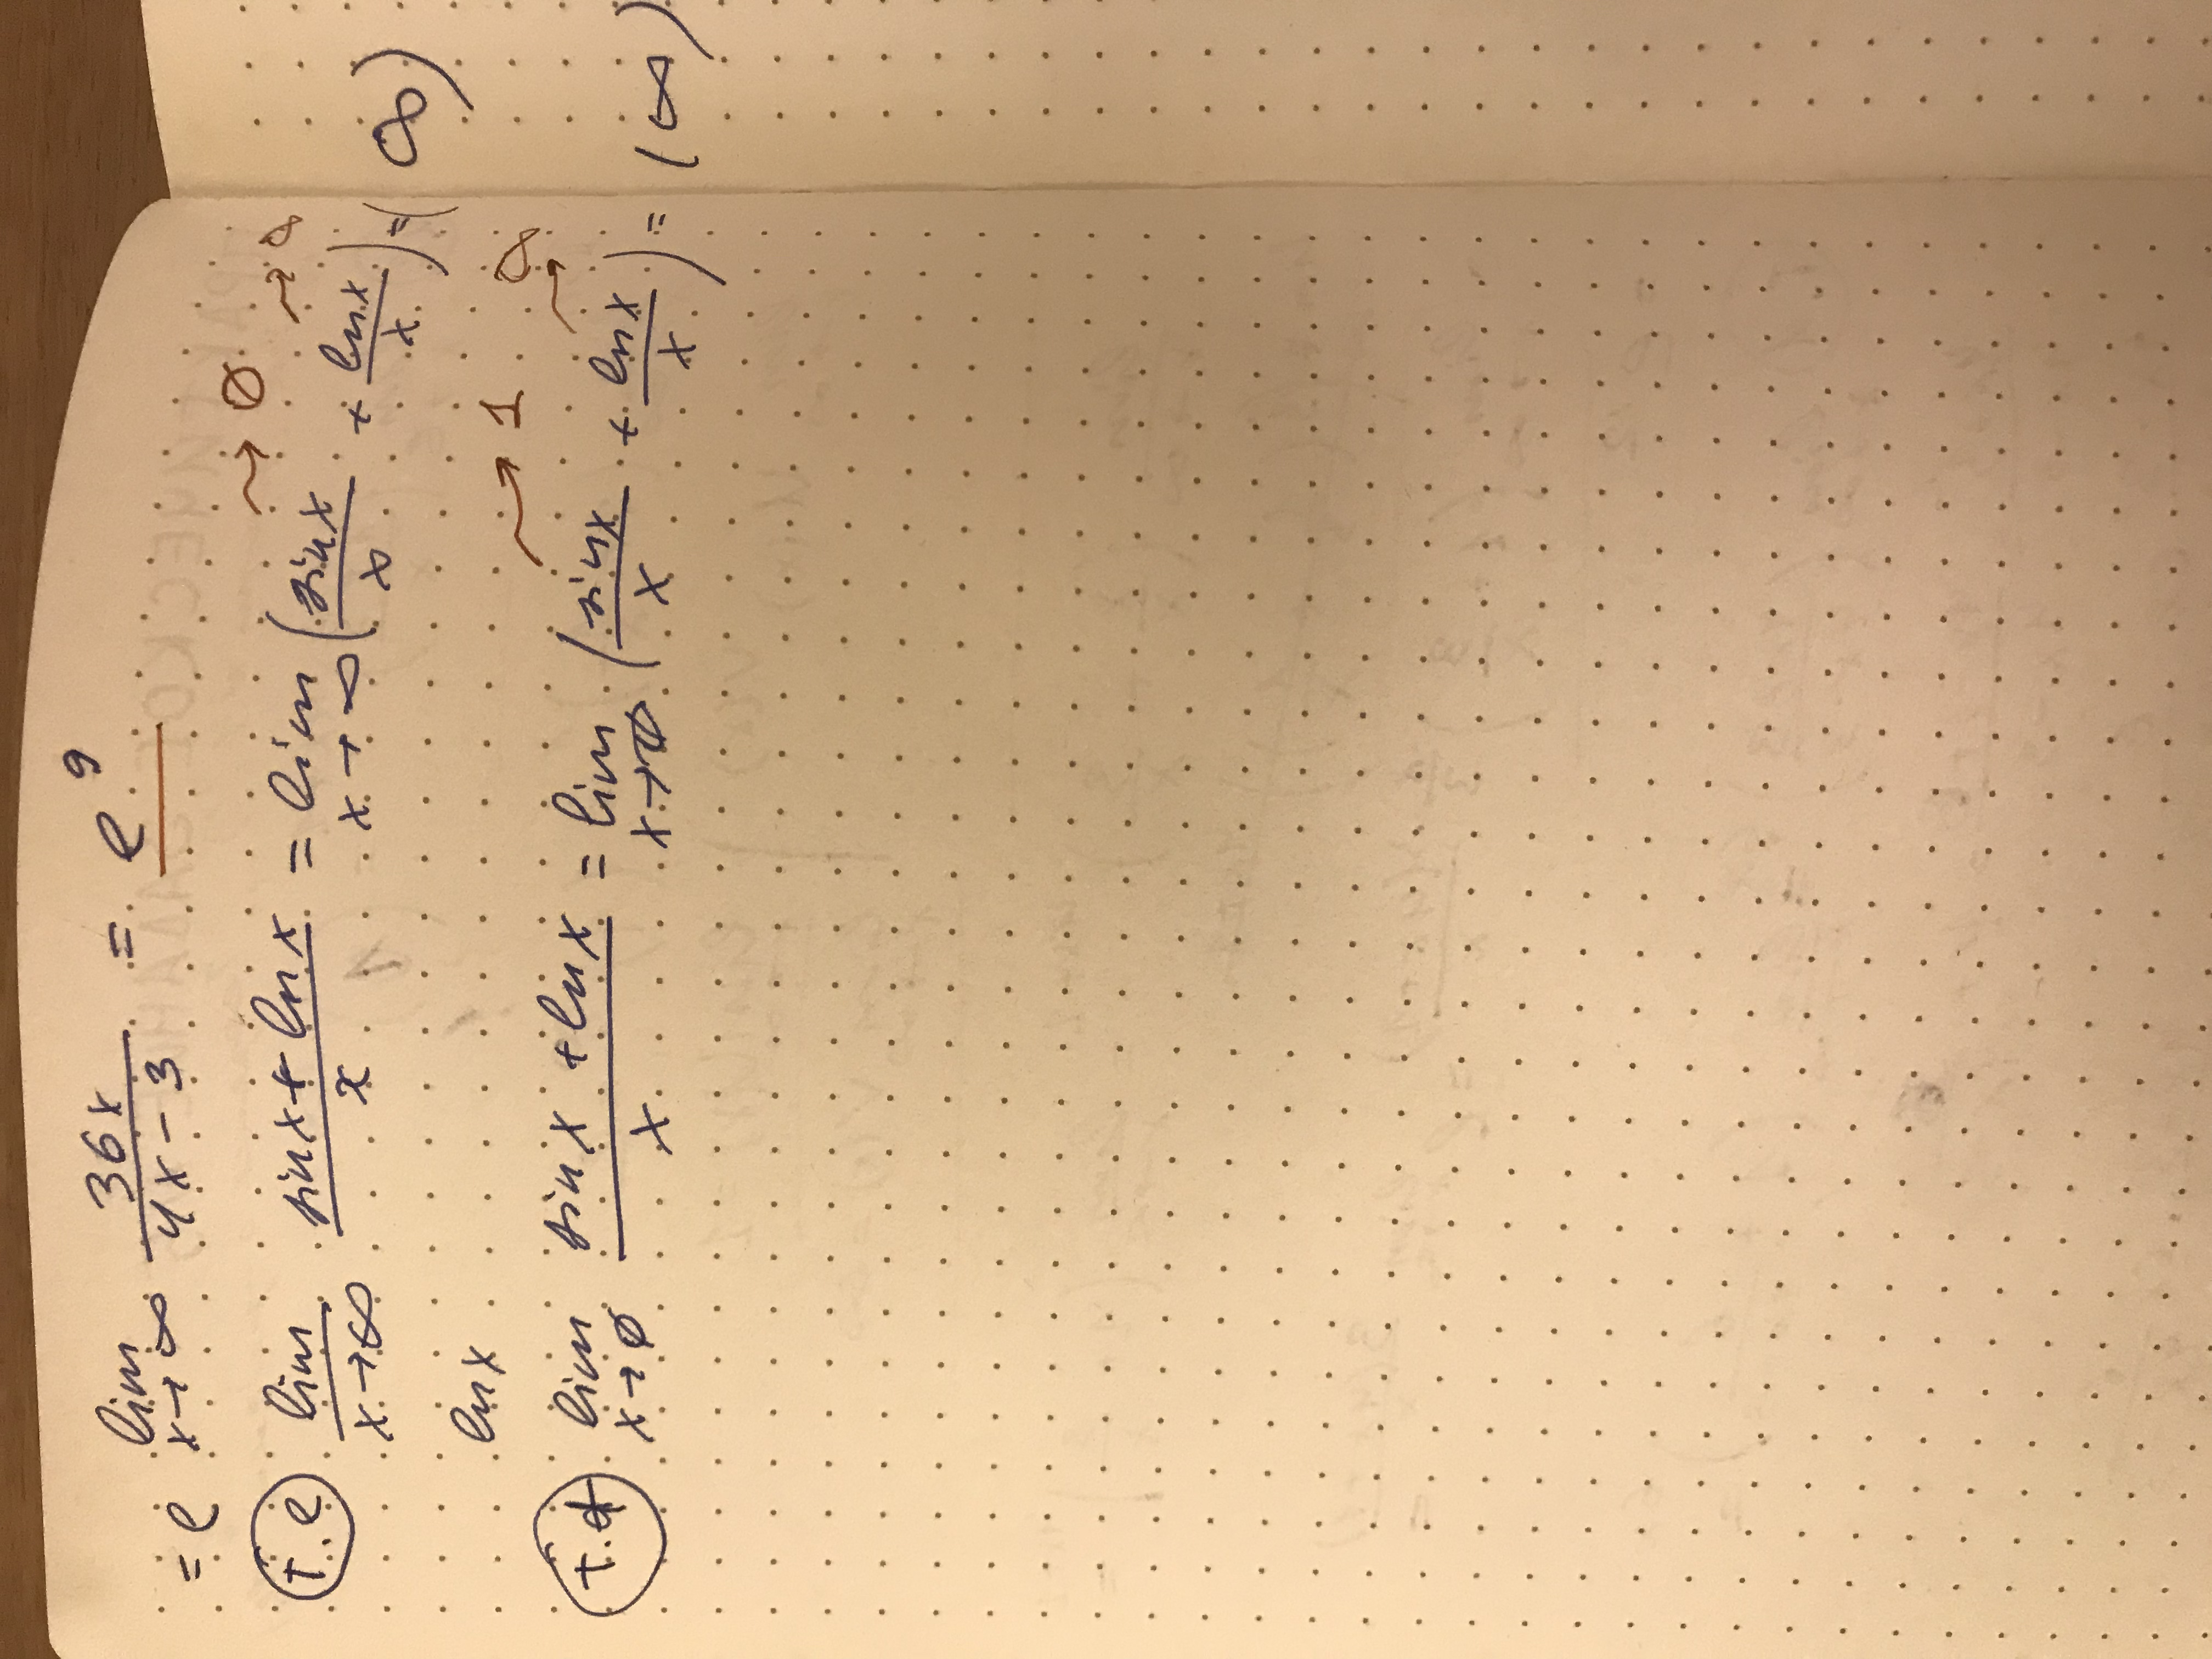 = e^{lim_{x→∞} \frac{36x}{4x-3}} = e^9
7.e lim_{x→∞} \frac{sinx + lnx}{x} = lim_{x→∞} (\frac{sinx}{x} →0 + \frac{lnx}{x} →∞) = (∞)
lnx
7.f lim_{x→0} \frac{sinx + lnx}{x} = lim_{x→0} (\frac{sinx}{x} →1 + \frac{lnx}{x} →∞) = (∞)